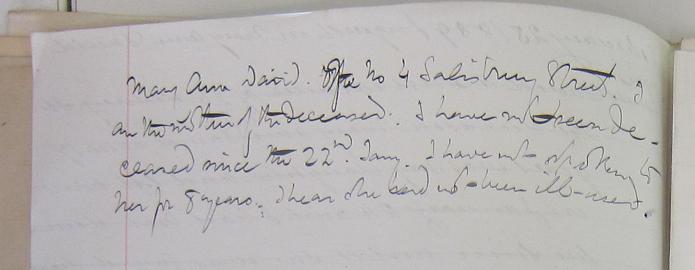 Mary Ann David. Of No 4 Salisbury Street. I
am the mother of the deceased. I have not seen de-
ceased since the 22nd. Jany. I have not spoken to
her for 8 years. I hear she had not been ill-used.